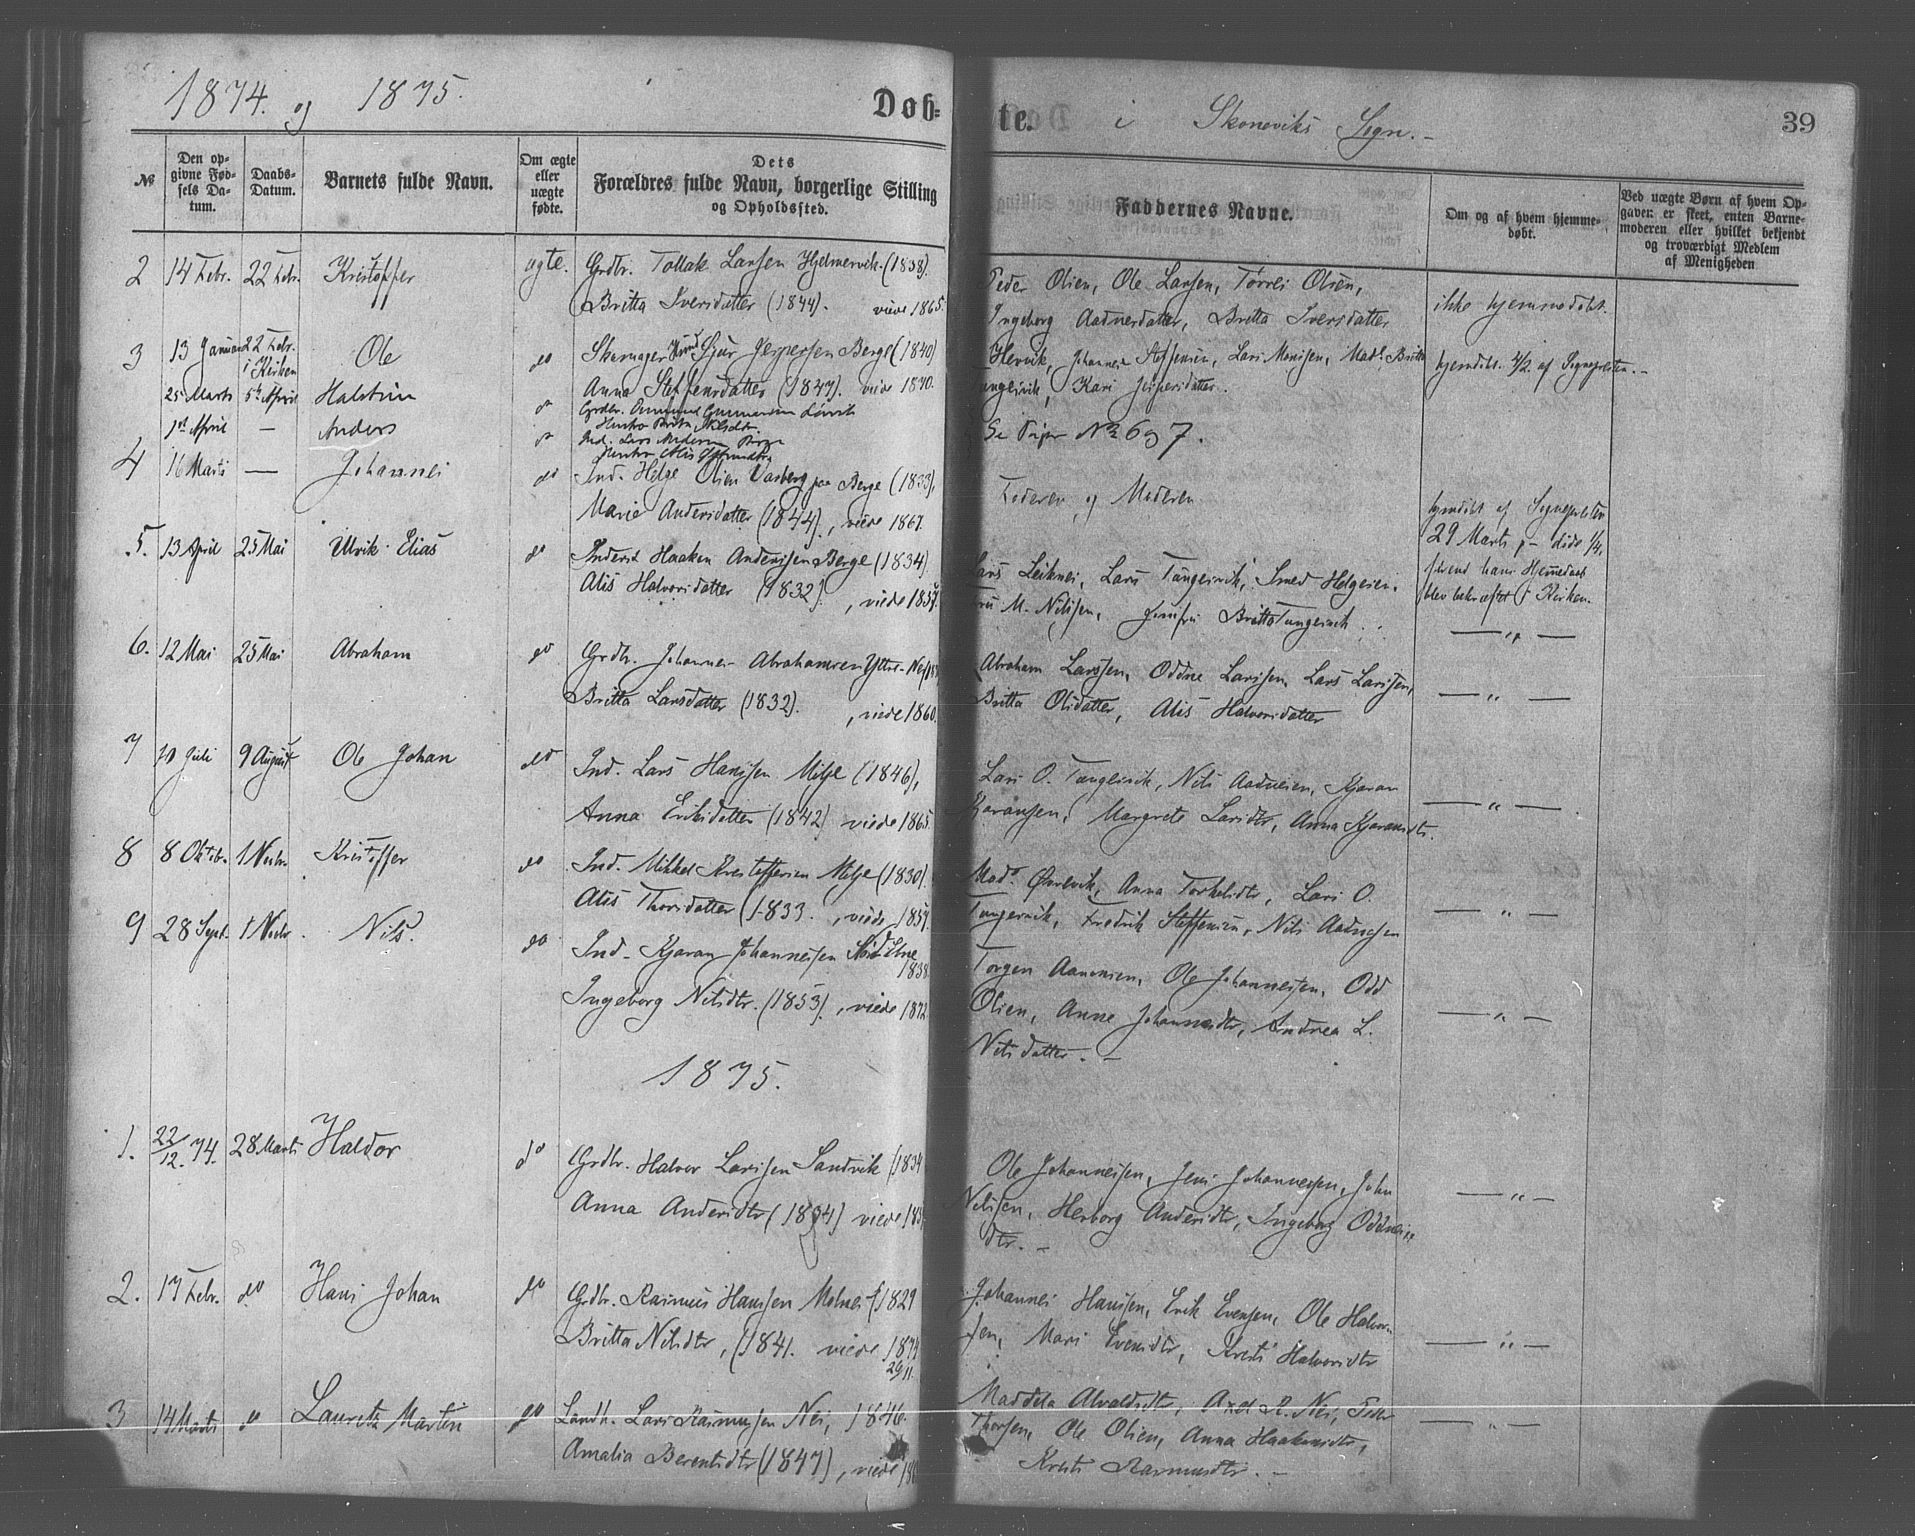 1874. og 1875.
Døb-
te.
i Skoneviks Sogn. -
39
№
Den op-
givne Fød-
sels Da-
tum.
Daabs-
Datum.
Barnets fulde Navn.
Om ægte
eller
uægte
fødte.
Dets
Forældres fulde Navn, borgerlige Stilling
og Opholdssted.
Faddernes Navne.
Om og af hvem hjemme-
døbt.
Ved uægte Børn af hvem Op-
gaven er skeet, enten Barne-
moderen eller hvilket bekjendt
og troværdigt Medlem
af Menigheden
2 14 Febr. 22 Febr. Kristoffer ægte. Grdbr. Tollak Larsen Hjelmervik (1838).
Britta Iversdatter (1844). viede 1865.
Peder Olsen, Ole Larsen, Tørres Olsen,
Ingeborg Aadnesdatter, Britta Iversdatter
ikke hjemmedøbt.
3 13 Januar 22 Febr. i Kirken Ole do Skomager Sjur Jespersen Berge (1840)
Anna Steffensdatter (1847). viede 1870.
Johannes Steffensen, Lars Monsen, Mad. Britta
Tungesvik, Kari Jespersdatter.
hjemdøbt 4/2 af Sognepresten. -
25 Marts 5te April Halstein do Grdbr. Gunnarsen
Hustro Brita Nilsdtr.
1ste April — Anders do Ind. Lars Andersen Berge
Hustro Alis
Se No 6 og 7.
4 16 Marts — Johannes do Ind. Helge Olsen Varberg paa Berge (1833),
Marie Andersdatter (1844)., viede 1867.
Faderen og Moderen
hjemdøbt af Sognepresten
29 Marts, - døde 1/4,
førend hans Hjemmedaab
blev bekræftet i Kirken.
5. 13 April 25 Mai Ulrik Elias do Inderst Haaken Anderssen Berge (1834)
Alis Halvorsdatter (1832)., viede 1857.
Lars Leiknes, Lars Tungesvik, Smed Helgesen,
Fru M. Nilssen, Jomfru Britta Tungesvik.
— " —
6. 12 Mai 25 Mai Abraham do Grdb. Johannes Abrahamsen Ytre-Nes
Britta Larsdatter (1832)., viede 1860.
Abraham Larssen, Oddne Larssen, Lars Larssen,
Britta Olsdatter, Alis Halvorsdatter
— " —
7 10 Juli 9 August Ole Johan do Ind. Lars Hanssen Milje (1846),
Anna Eriksdatter (1842) viede 1865.
Lars O. Tungesvik, Nils Aadnesen, Kjaran
Kjaransen, Margrete Larsdtr, Anna Kjaransdtr.
— " —
8 8 Oktobr. 1 Novbr Kristoffer do Ind. Mikkel Kristoffersen Milje (1830).
Alis Thorsdatter (1833., viede 1857.
Mad. Ørelvik, Anna Torkelsdtr, Lars O.
Tungesvik, Fredrik Steffensen, Nils Aadnesen
— " —
9 28 Sept. 1 Novbr. Nils. do Ind. Kjaran Johannessen Nord Etne
1838.
Ingeborg Nilsdtr. (1853)., viede 1872
Torger Aamonsen, Ole Johannessen, Odd
Olsen, Anne Johannesdtr, Andrea L.
Nilsdatter. -
— " —
1875.
1. 22/12. 74. 28 Marts Haldor do Grdbr. Halvor Larssen Sandvik (1834
Anna Andersdtr (1834) viede 185
Ole Johannessen, Jens Johannessen, John
Nilssen, Herborg Andersdtr, Ingeborg Oddnes-
dtr. -
— " —
2. 17 Febr. do Hans Johan do Grdbr. Rasmus Hanssen Molnes (1829
Britta Nilsdtr, (1841. viede 1874
29/11.
Johannes Hanssen, Erik Evensen, Ole Halvor-
sen, Mari Evensdtr, Kristi Halvorsdtr
— " —
3 14 Marts do Lauritz Martin do Landh. Lars Rasmussen Nes, 1846.
Amalia Berentsdtr (1847), viede 18
Maddela Alvaldsdtr, Axel R. Nes, Peder
Thorsen, Ole Olsen, Anna Haakensdtr,
Kristi Rasmusdtr. -
— " —